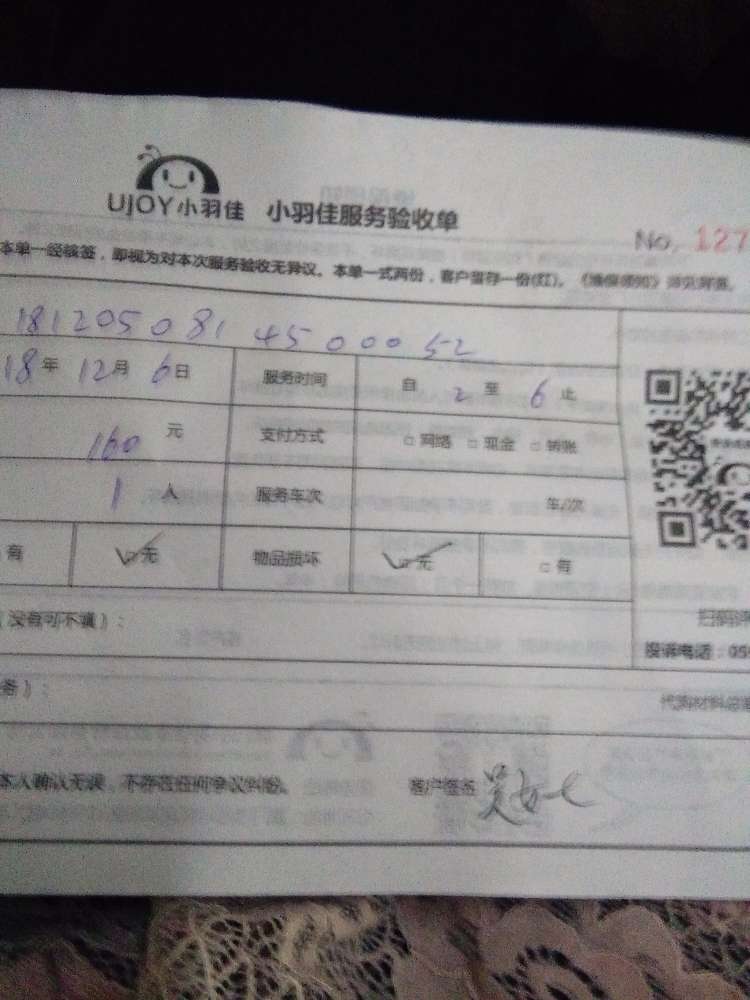 UJOY小羽佳 小羽佳服务验收单
No. 127
本单一经核签，即视为对本次服务验收无异议。本单一式两份，客户留存一份(红)。《维保须知》详见背面。
181205081 4500052
18年 12月 6日 服务时间 自 2 至 6 止
160 元 支付方式 网络 现金 转账
1 人 服务车次 车/次
有 无 物品损坏 无 有
（没有可不填）：
扫码
投诉电话：059
备）：
代购材料
本人确认无误，不存在任何争议纠纷。 客户签名